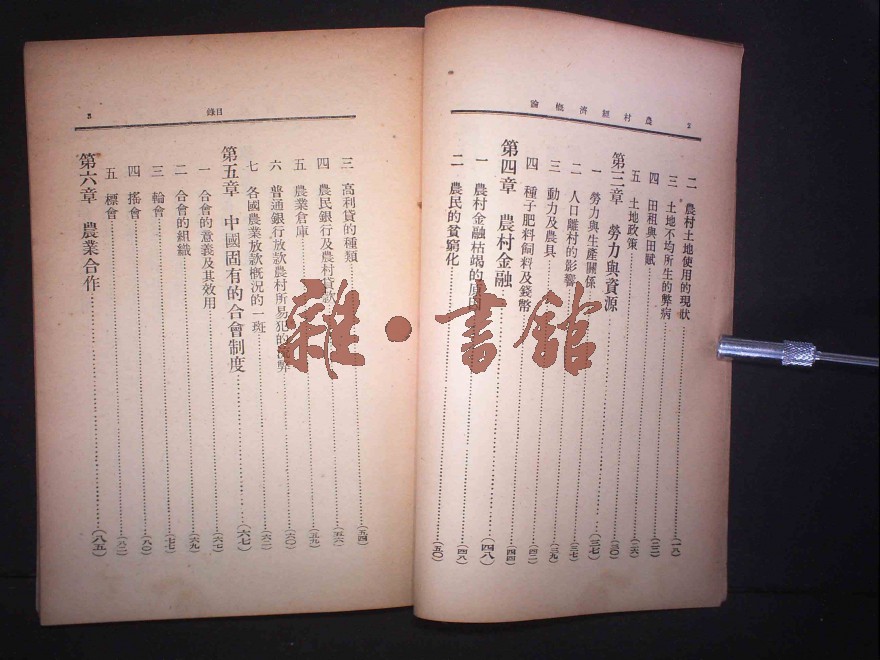 農村經濟概論
2
二 農村土地使用的現狀……(一八)
三 土地不均所生的弊病……
四 田租與田賦……
五 土地政策……(二六)
第三章 勞力與資源……(三〇)
一 勞力與生產關係……(三七)
二 人口離村的影響……(三七)
三 動力及農具……(三九)
四 種子肥料飼料及錢幣……(四四)
第四章 農村金融……(四八)
一 農村金融枯竭的原因……(四八)
二 農民的貧窮化……(五〇)
目錄
3
三 高利貸的種類……(五四)
四 農民銀行及農村貸款……(五六)
五 農業倉庫……(五九)
六 普通銀行放款農村所易犯的弊……(六〇)
七 各國農業放款概況的一斑……(六二)
第五章 中國固有的合會制度……(六七)
一 合會的意義及其效用……(六七)
二 合會的組織……(六九)
三 輪會……(七七)
四 搖會……(八〇)
五 標會……(八二)
第六章 農業合作……(八五)
雜·書館